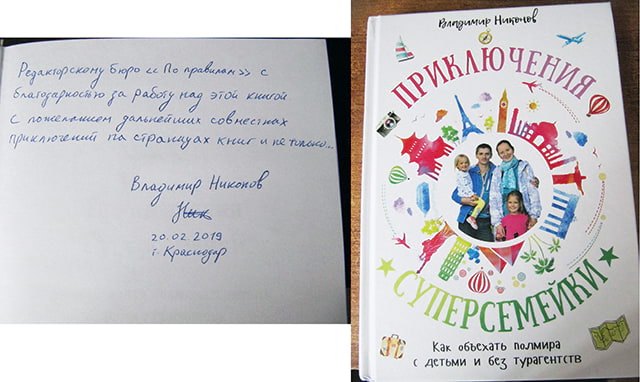 Редакторскому Бюро «По правилам» с
благодарностью за работу над этой книгой
с пожеланием дальнейших совместных
приключений на страницах книг и не только...
Владимир Никонов
Ник
20.02.2019
г. Краснодар
Владимир Никонов
ПРИКЛЮЧЕНИЯ
СУПЕРСЕМЕЙКИ
Как объехать полмира
с детьми и без турагентств